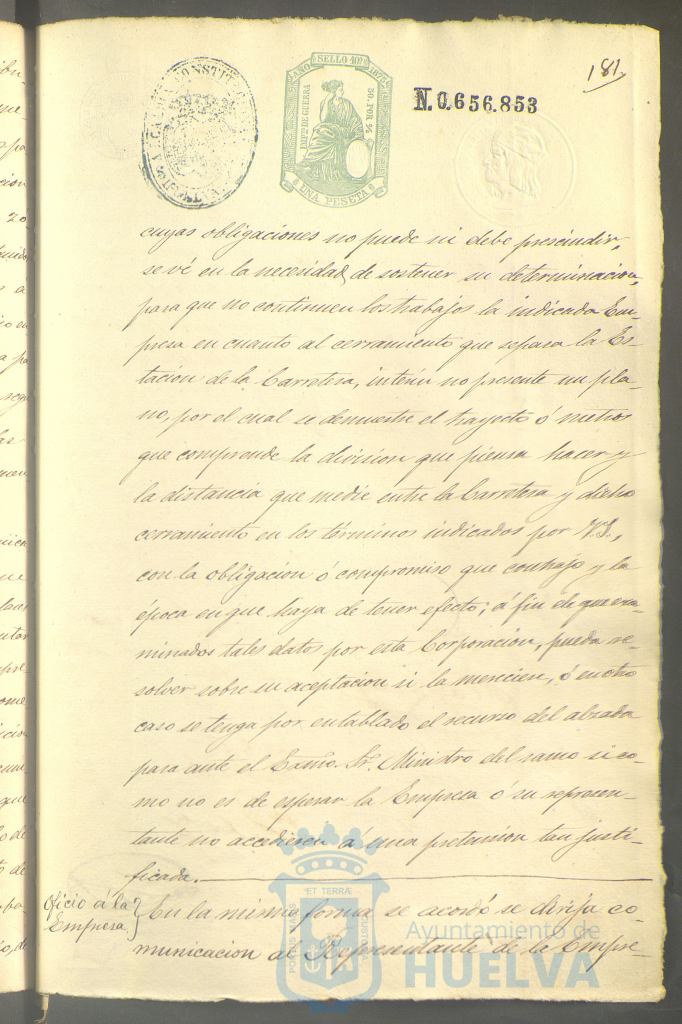 181
AÑO SELLO 10º 1877
IMPTO DE GUERRA
50 POR %
UNA PESETA
N.0.656.853
cuyas obligaciones no puede ni debe prescindir,
se vé en la necesidad, de sostener su determinacion,
para que no continuen los trabajos la indicada Em-
presa en cuanto al cerramiento que separa la Es-
tacion de la Carretera, interin no presente un pla-
no, por el cual se demuestre el trayecto ó metros
que comprende la division que piensa hacer y
la distancia que medie entre la Carretera y dicho
cerramiento en los términos indicados por V.S.,
con la obligacion ó compromiso que contrajo y la
época en que haya de tener efecto; á fin de que exa-
minados tales datos por esta Corporacion, pueda re-
solver sobre su aceptacion si la mereciere, ó en otro
caso se tenga por entablado el recurso del alzada
para ante el Excmo. Sr. Ministro del ramo si co-
mo no es de esperar la Empresa ó su represen-
tante no accediesen á una pretension tan justi-
ficada.
Oficio á la
Empresa
En la misma forma se acordó se dirija co-
municacion al Representante de la Empre-
Ayuntamiento de
HUELVA